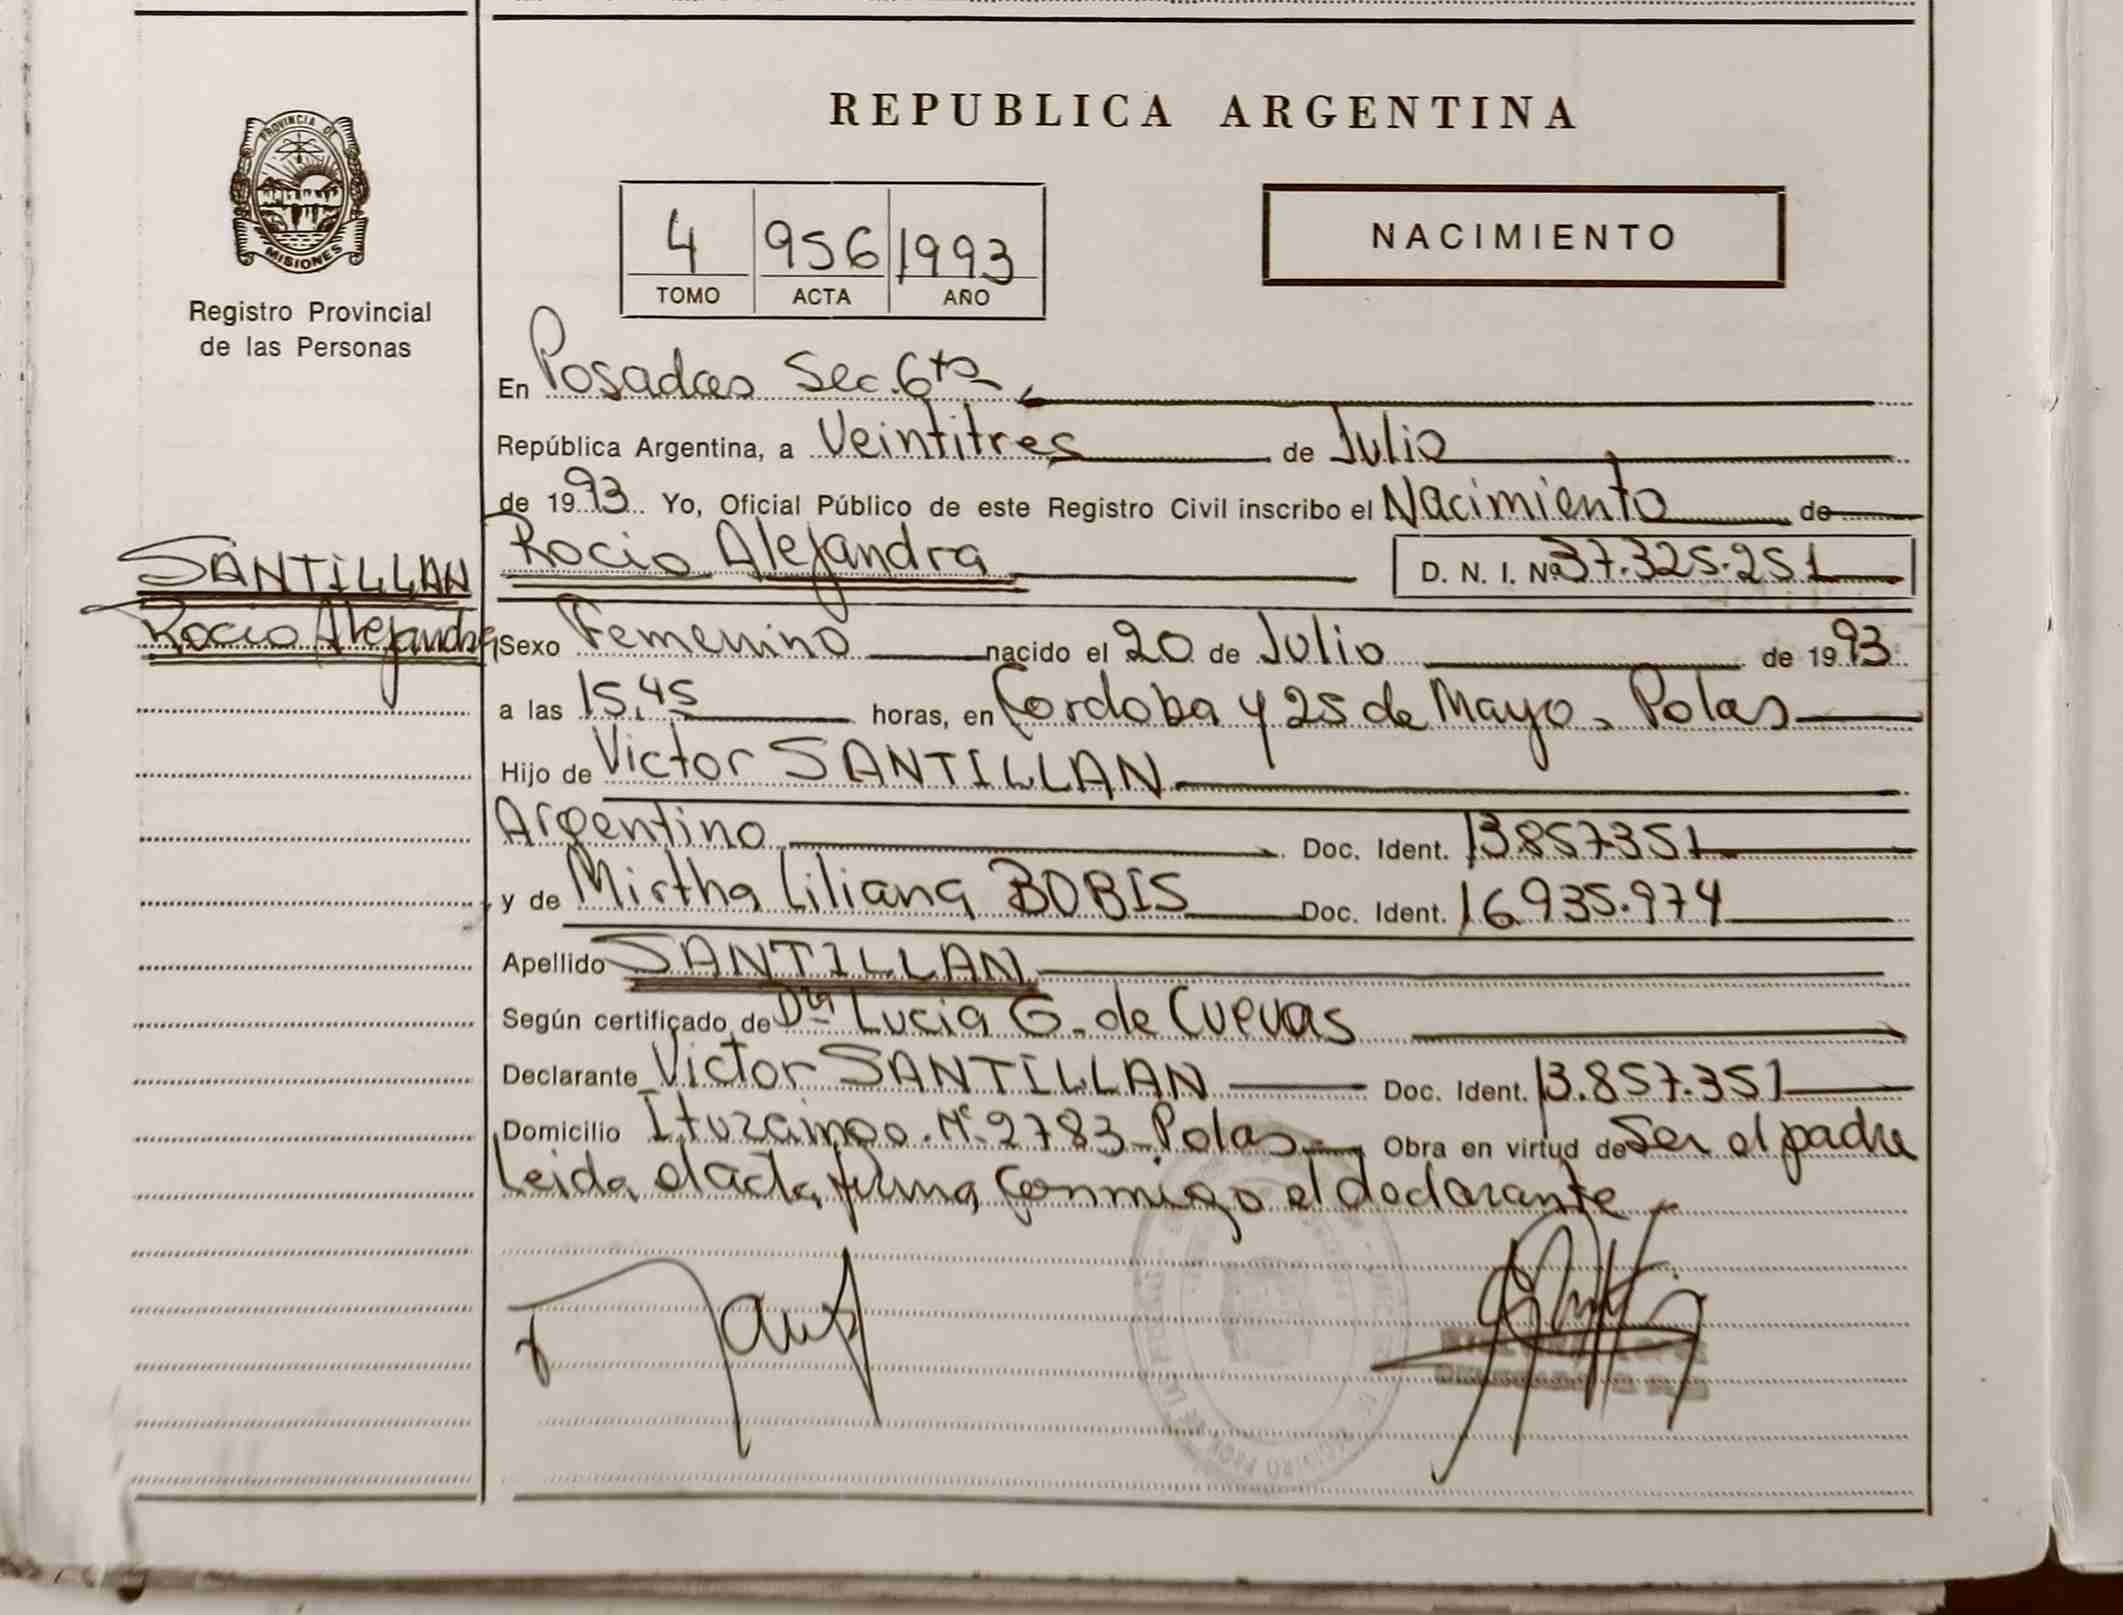 REPUBLICA ARGENTINA
PROVINCIA DE
MISIONES
Registro Provincial
de las Personas
4 956 1993
TOMO ACTA AÑO
NACIMIENTO
En Posadas Sec. 6ta
República Argentina, a Veintitres de Julio
de 1993 Yo, Oficial Público de este Registro Civil inscribo el Nacimiento de
SANTILLAN
Rocio Alejandra
Rocio Alejandra D. N. I. Nº 37.325.251
Sexo Femenino nacido el 20 de Julio de 1993
a las 15,45 horas, en Cordoba y 25 de Mayo. Pdas
Hijo de Victor SANTILLAN
Argentino Doc. Ident. 13.857.351
y de Mirtha Liliana BOBIS Doc. Ident. 16.935.974
Apellido SANTILLAN
Según certificado de Dra Lucia G. de Cuevas
Declarante Victor SANTILLAN Doc. Ident. 13.857.351
Domicilio Ituzaingo Nº 2783 Pdas Obra en virtud de Ser el padre
Leida el acta, firma conmigo el declarante